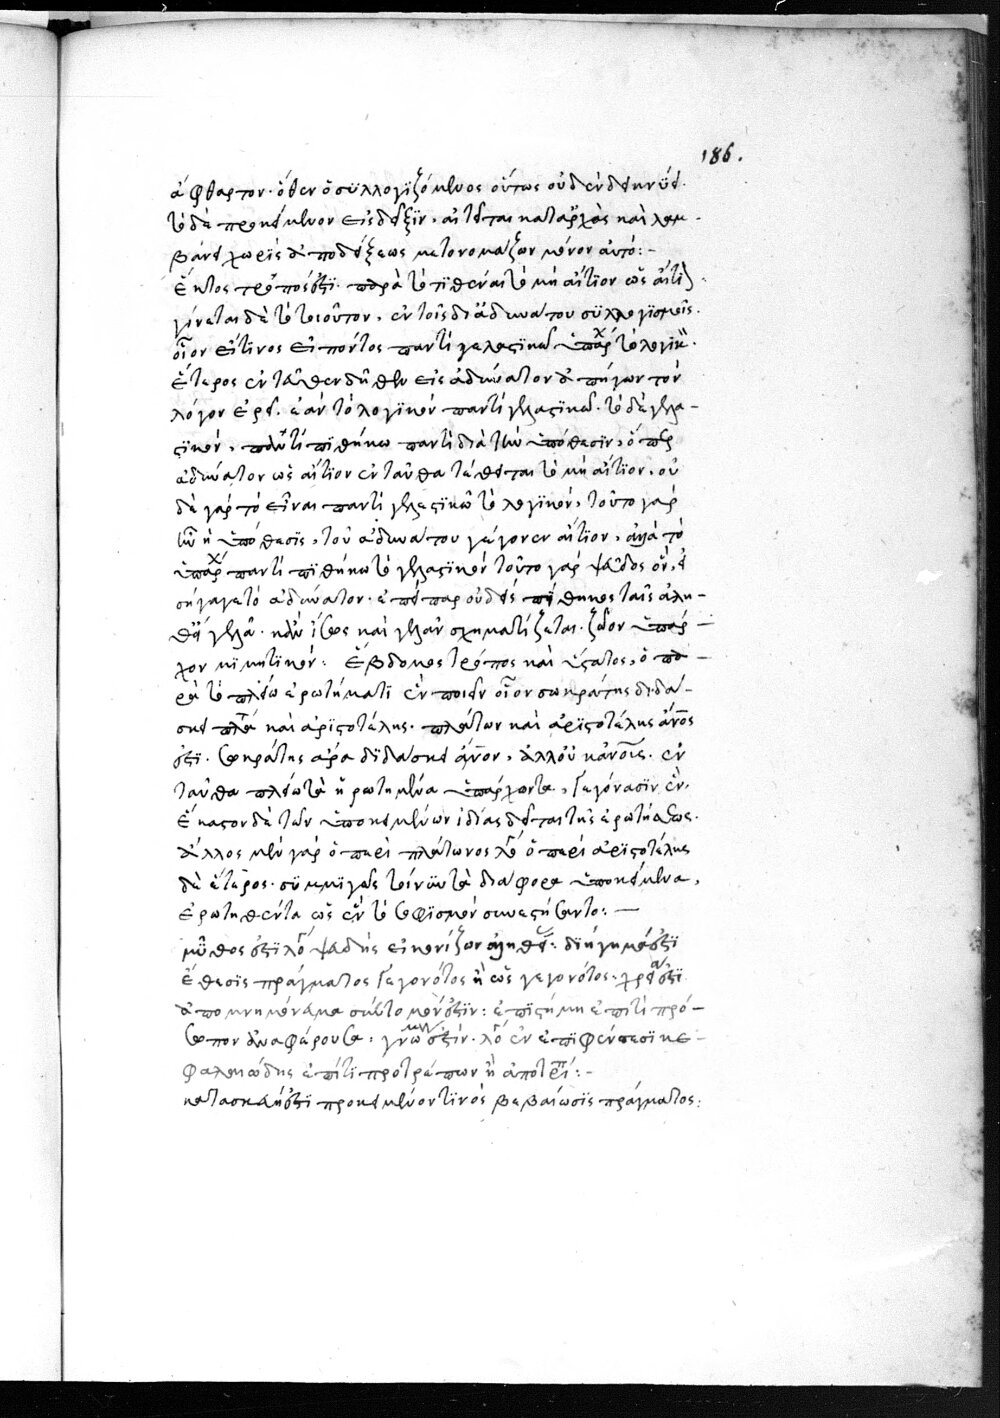 186.
ἄφθαρτον· ὅθεν ὁ συλλογιζόμενος οὕτως οὐδὲν δεικνύει·
τὸ δὲ προκείμενον εἰς δεῖξιν, αἰτεῖται κατ' ἀρχὰς καὶ λαμ-
βάνει χωρὶς ἀποδείξεως μετονομάζων μόνον αὐτό:-
Ἕκτος τρόπος ἐστὶ παρὰ τὸ τιθέναι τὸ μὴ αἴτιον ὡς αἴτιον·
γίνεται δὲ τὸ τοιοῦτον, ἐν τοῖς δι' ἀδυνάτου συλλογισμοῖς·
οἷον εἴ τινος εἰπόντος παντὶ γελαστικῷ ὑπάρχ τὸ λογικὸν·
ἕτερος ἐντεῦθεν δῆθεν εἰς ἀδύνατον ἀπάγων τὸν
λόγον ἐρεῖ· ἐὰν τὸ λογικὸν παντὶ γελαστικῷ· τὸ δὲ γελα-
στικὸν, παντὶ πιθήκω παντὶ διὰ τὴν ὑπόθεσιν, ὅπερ
ἀδύνατον ὡς αἴτιον ἐνταῦθα τέθειται τὸ μὴ αἴτιον, οὐ
δὲ γὰρ τὸ εἶναι παντὶ γελαστικῶ τὸ λογικόν, τοῦτο γὰρ
ἦν ἡ ὑπόθεσις, τοῦ ἀδυνάτου γέγονεν αἴτιον, ἀλλὰ τὸ
ὑπάρχ παντὶ πιθήκω τὸ γελαστικόν τοῦτο γὰρ ψεῦδος ὄν,
σήγαγε τὸ ἀδύνατον· ἐπείπερ οὐδεὶς πίθηκος ταῖς ἀλη-
θείαις γελᾶ· κἂν ἴσως καὶ γελᾶν σχηματίζεται· ζῶον ὑπάρ-
χον μιμητικόν: Ἕβδομος τρόπος καὶ ὕστατος, ὁ πα-
ρὰ τὸ πλείω ἐρωτήματα ἓν ποιεῖν οἷον σωκράτης διδά-
σκει πλάτωνα καὶ ἀριστοτέλης· πλάτων καὶ ἀριστοτέλης ἄνος
ἐστὶ· σωκράτης ἄρα διδάσκει ἄνον, ἀλλ' οὐκ ἀνοις· ἐν
ταῦθα πλείω τὰ ἠρωτημένα ὑπάρχοντα, γεγόνασιν ἕν·
ἕκαστον δὲ τῶν ὑποκειμένων ἰδίας δεῖται τῆς ἐρωτήσεως·
ἄλλος μὲν γὰρ ὁ περὶ πλάτωνος λόγος ὁ περὶ ἀριστοτέλης
δὲ ἕτερος· συμμιγῶς τοίνυν τὰ διάφορα ὑποκείμενα,
ἐρωτηθέντα ὡς ἓν τὸ σόφισμον συνεστήσαντο:—
μῦθος ἐστὶ λόγος ψευδὴς εἰκονίζων ἀλήθειαν: διήγημά ἐστὶ
ἔκθεσις πράγματος γεγονότος ἢ ὡς γεγονότος· χρεία ἐστὶ
ἀπομνημόνευμα σύντομόν ἐστιν: ἐπι πρό-
σωπον ἀναφέρουσα: γνώμη ἐστὶν· λόγος ἐν
φαλαιώδης ἐπί τι προτρέπων ἢ ἀποτρέπων:-
κατασκευή ἐστὶ προκειμένου τινὸς βεβαίωσις πράγματος: